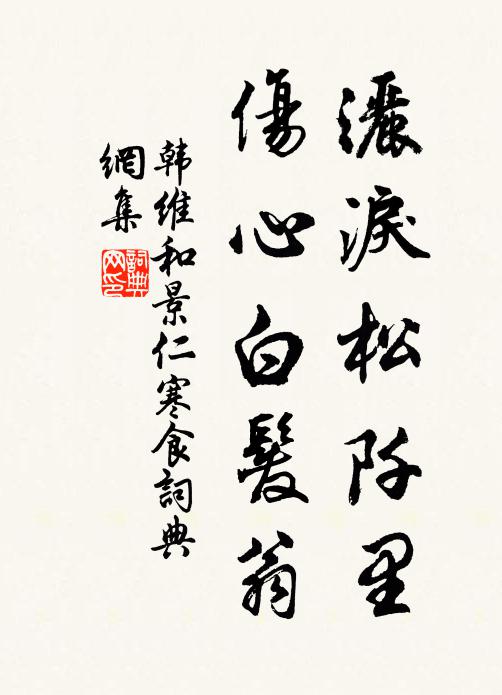 灑淚松阡里
傷心白髮翁
韩維和景仁寒食詞典
網集
詞典
网印